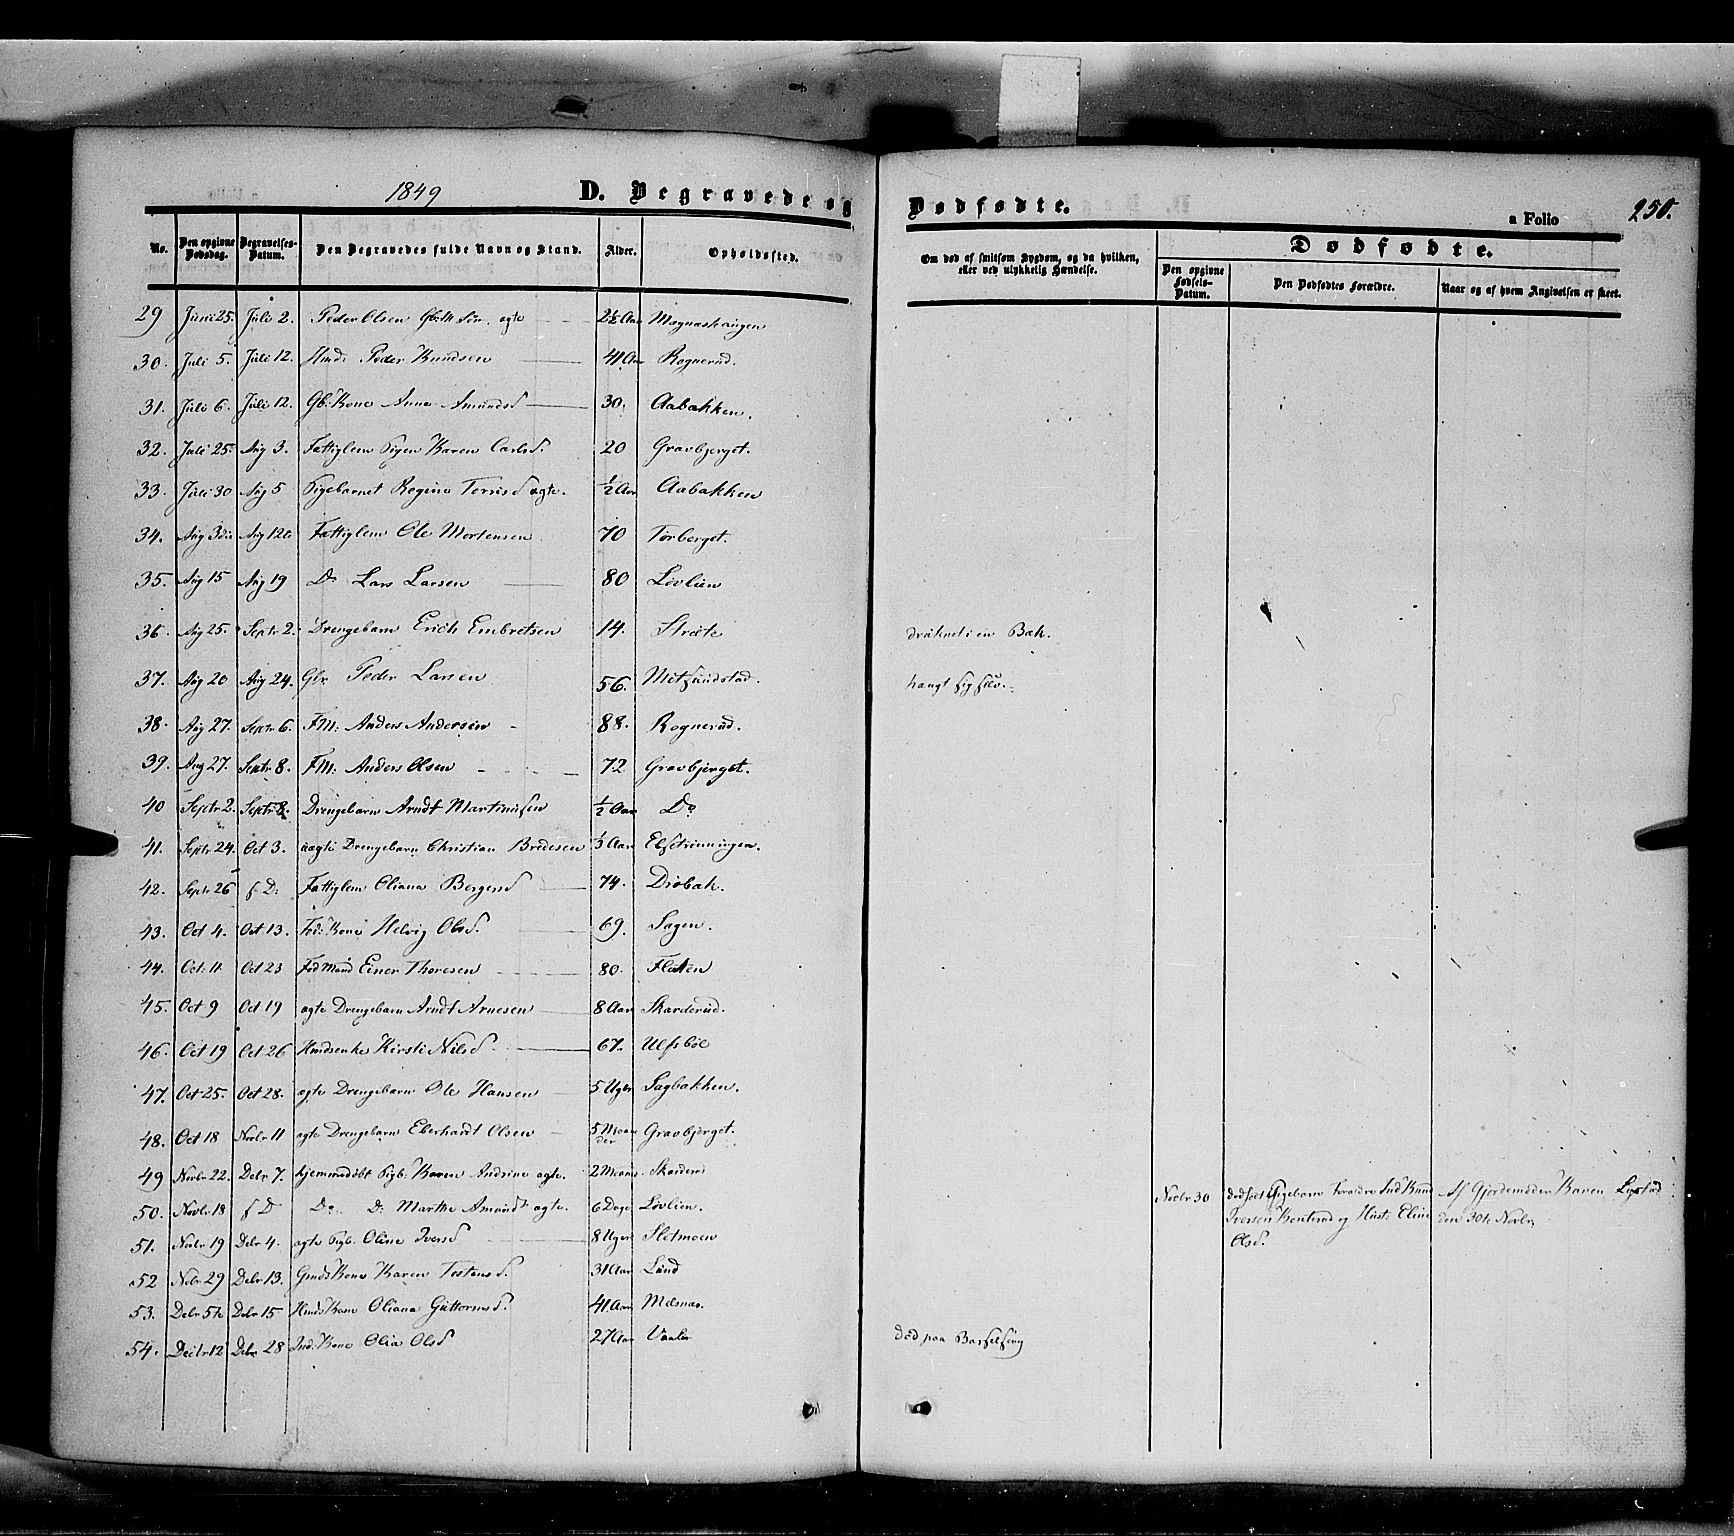 1849 D. Begravede og Dødfødte. a Folio 250.
No. Den opgivne Dødsdag. Begravelses-Datum. Den Begravedes fulde Navn og Stand. Alder. Opholdssted. Om død af smitsom Sygdom, og da hvilken, eller ved ulykkelig Hændelse. Dødfødte.
Den opgivne Fødsels-Datum. Den Dødfødtes Forældre. Naar og af hvem Angivelsen er skeet.
29 Juni 25. Juli 2. Peder Olsen agte 2½ Aar Magnushaugen
30. Juli 5. Juli 12. Hmd: Peder Knudsen 41 Aar Rognerud.
31. Juli 6. Juli 12. Gb: Kone Anna Amundsd 30. Aabakken.
32. Juli 25. Aug 3. Fattiglem Pigen Karen Carlsd. 20 Gravbjerget.
33. Juli 30 Aug 5 Pigebarnet Regine agte. ½ Aar Aabakken
34. Aug 3die Aug 12te Fattiglem Ole Mortensen 70 Torberget.
35. Aug 15 Aug 19 Do Lars Larsen 80 Lövlien
36. Aug 25. Septr 2. Drengebarn Erich Embretsen 14. Stræte druknet i en Bæk.
37. Aug 20 Aug 24. Gbr Peder Larsen 56. Mitskundstad. hængt sig selv.
38. Aug 27. Septr 6. FM: Anders Andersen 88. Rognerud.
39. Aug 27. Septr 8. FM: Anders Olsen 72 Gravbjerget.
40 Septr 2. Septr 8. Drengebarn Arndt Martinusen ½ Aar Do
41. Septr 24. Oct 3. uagte Drengebarn Christian Bredesen ½ Aar
42. Septr 26 s D: Fattiglem Oliana Bergersd 74. Dröbak.
43. Oct 4. Oct 13. Fød: Kone Helvig Olsd. 69. Sagen.
44. Oct. 11. Oct 23 Fød Mand Einer Thoresen 80. Flaten
45. Oct 9 Oct 19 agte Drengebarn Arndt Arnesen 8 Aar Skarderud.
46. Oct 19 Oct 26 Hmdsenke Kirsti Nilsd 67. Ulfsböl
47. Oct 25. Oct 28. agte Drengebarn Ole Hansen 5 Uger Sagbakken.
48. Oct 18 Novbr 11 agte Drengebarn Eberhardt Olsen 5 Maaneder Gravbjerget.
49 Novbr 22. Debr 7. hjemmedøbt Pigb. Karen Andrine agte. 2 Maan Skarderud
50. Novbr 18 s D Do D: Marthe Amundsd agte. 6 Dage Lövlien. Novbr 30 dødfødt Pigebarn Foræld Ind Knud Af Gjordemoder Karen Lystad
51. Novbr 19 Debr 4. agte Pigb. Oline Iversd 8 Uger Sletmoen Iversen og Hust: Eline Olsd. den 30te Novbr.
52 Nobr 29 Debr 13. Gmds Kone Karen Tostensd. 31 Aar Lund
53. Debr 5te Debr 15 Hmds Kone Oliana Guttormsd. 41 Aar Mæsnas.
54. Decbr 12 Debr 28 Ind: Kone Olia Olsd 27 Aar Vaaler død paa Barselseng